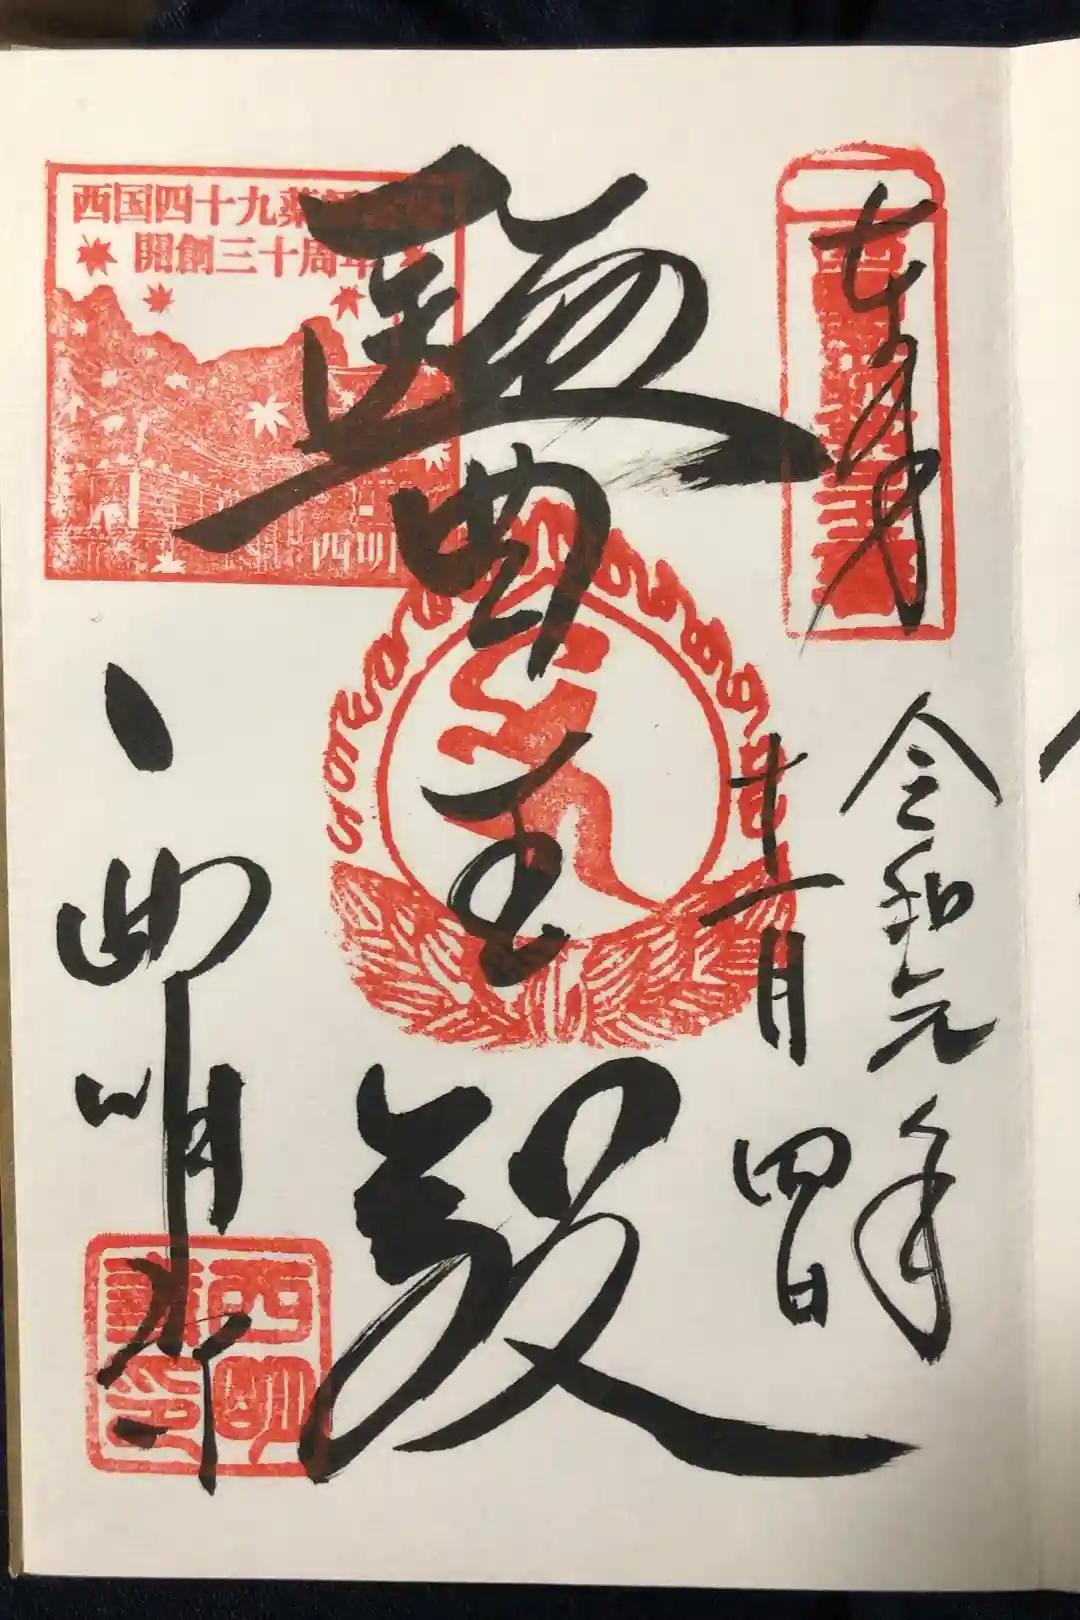 奉拝
令和元年
十一月四日
醫王殿
西明寺
西国四十九薬
開創三十周年
西明
西明
寺印